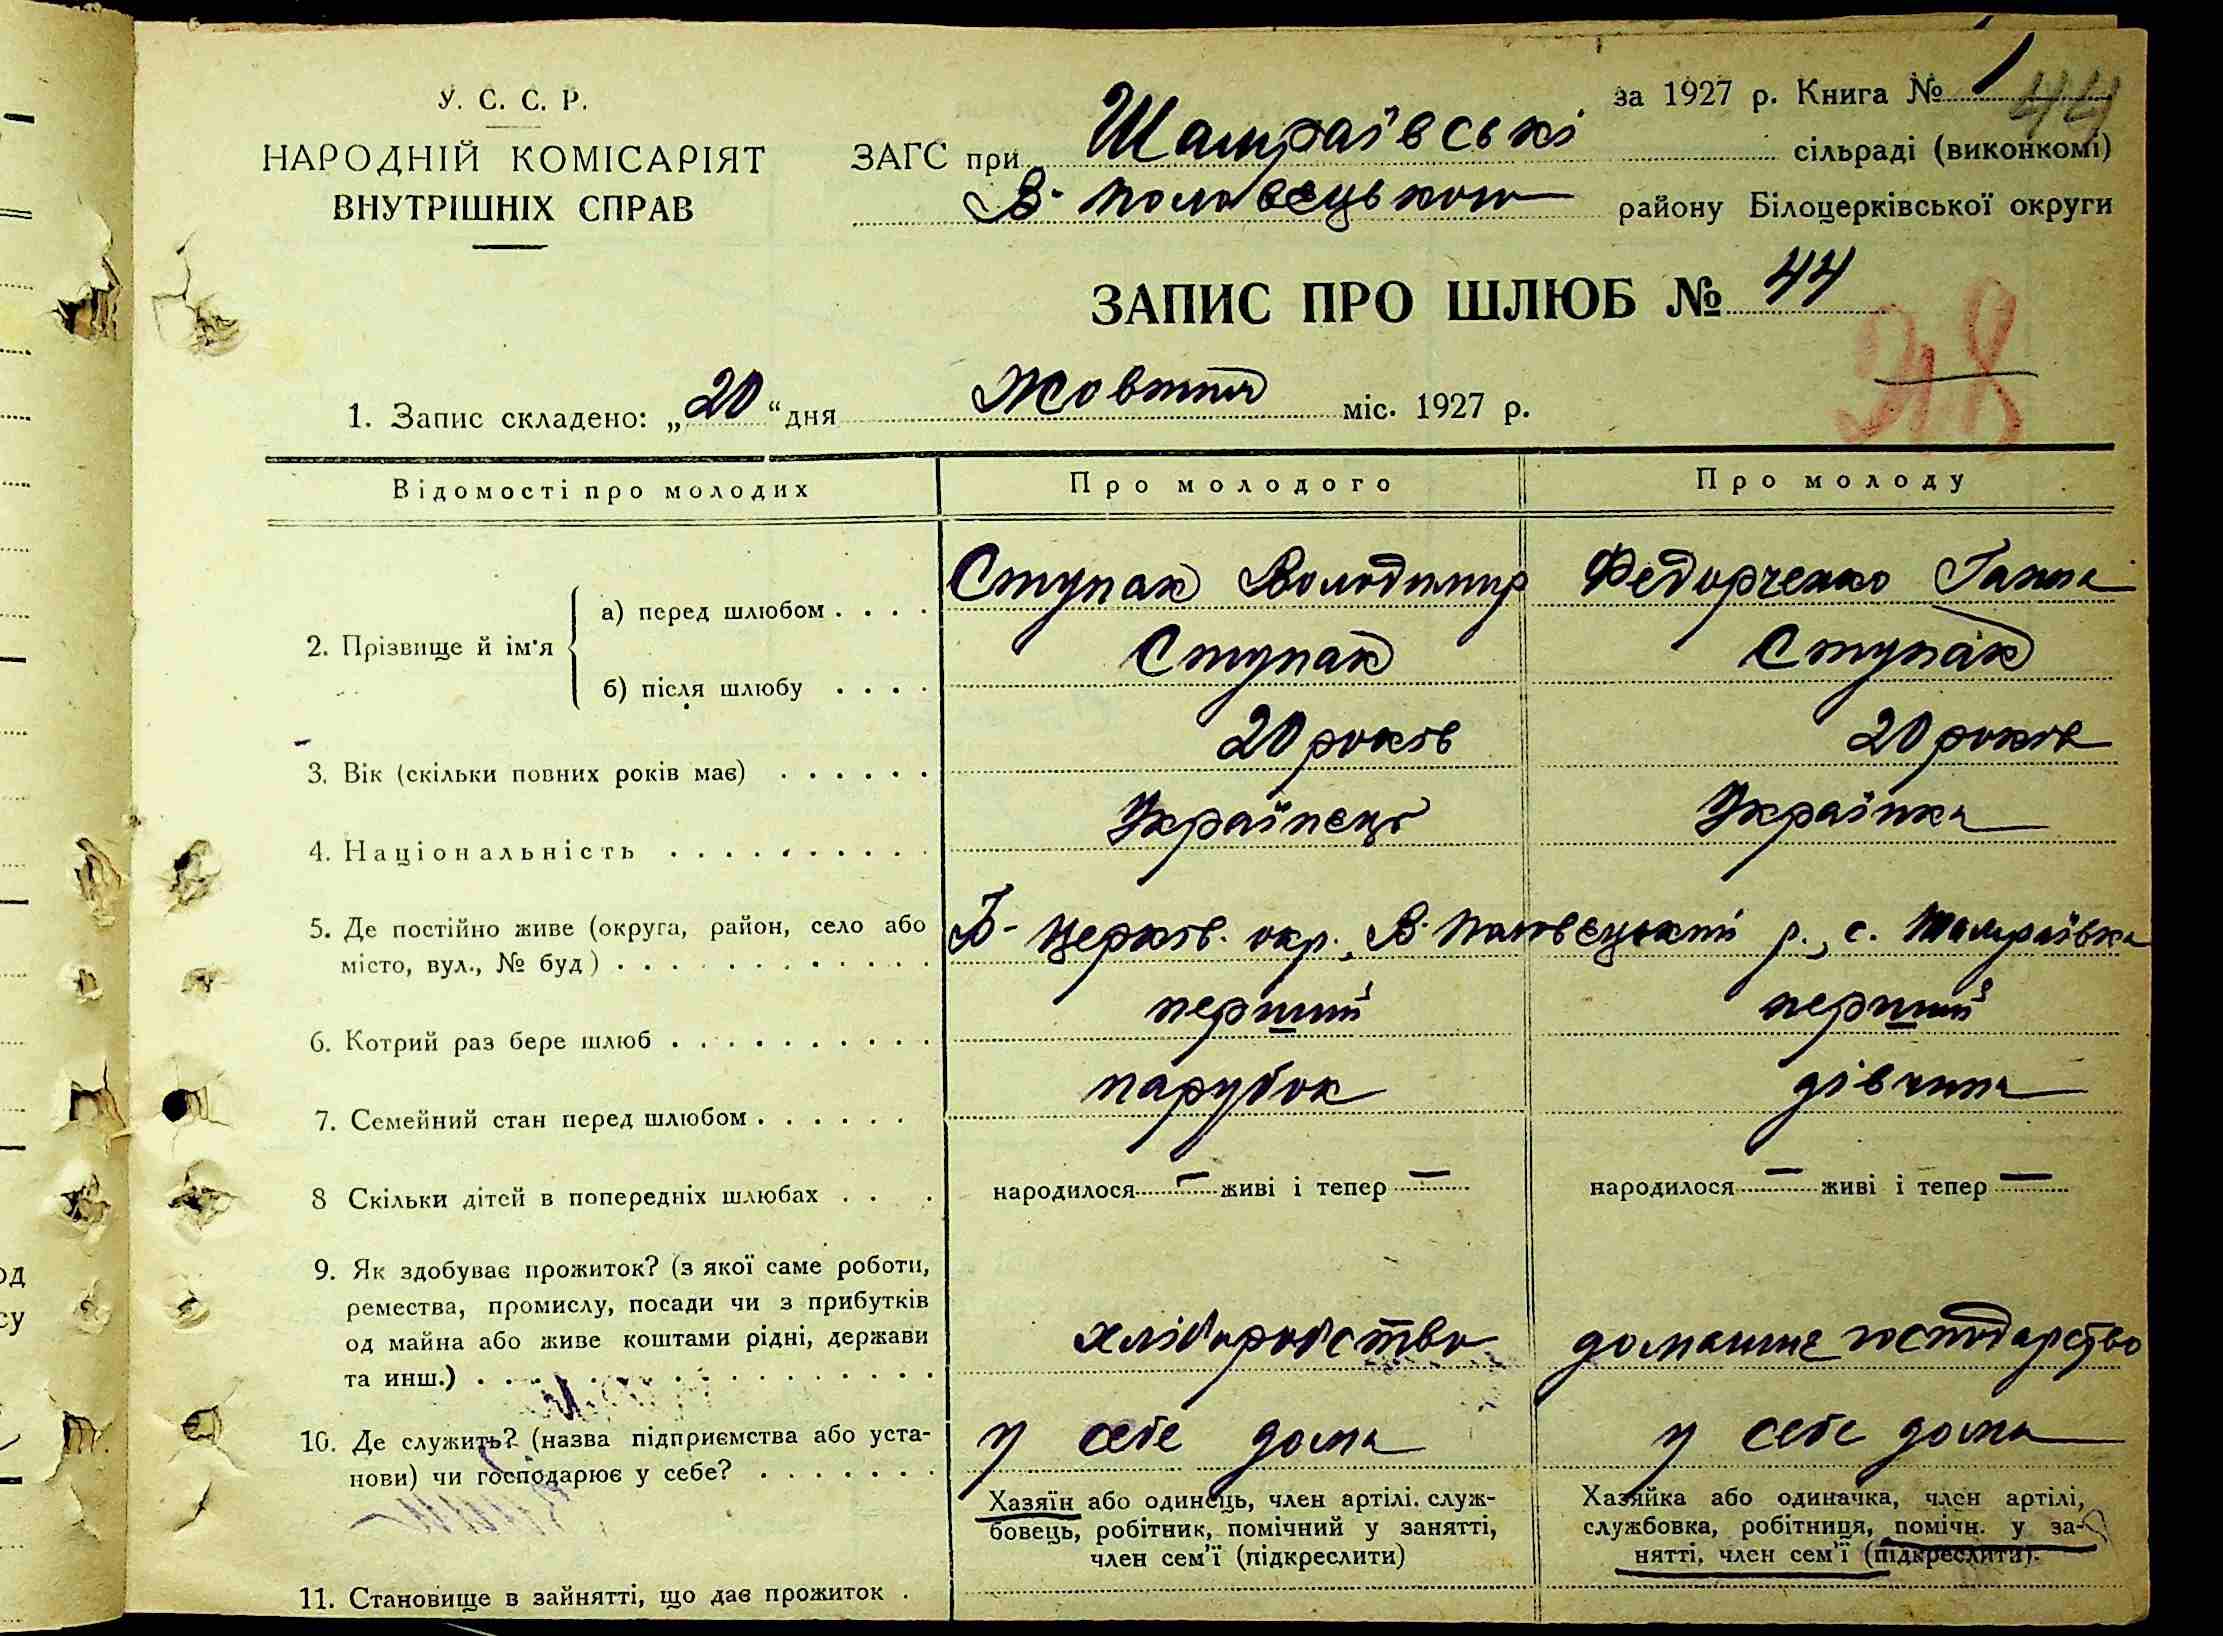 за 1927 р. Книга № 1 44
У. С. С. Р.
НАРОДНІЙ КОМІСАРІЯТ
ВНУТРІШНІХ СПРАВ
ЗАГС при Шамраївські сільраді (виконкомі)
В-Половецького району Білоцерківської округи
ЗАПИС ПРО ШЛЮБ № 44
1. Запис складено: „20“ дня Жовтня міс. 1927 р.
Відомості про молодих Про молодого Про молоду
2. Прізвище й ім'я
а) перед шлюбом . . . . Ступак Володимир Федорченко Ганна
б) після шлюбу . . . . Ступак Ступак
3. Вік (скільки повних років має) . . . . . . 20 років 20 років
4. Національність . . . . . . . . . . Українець Українка
5. Де постійно живе (округа, район, село або
місто, вул., № буд) . . . . . . . . . . . . Б-Церків. окр., В. Половецький р., с. Шамраївка
6. Котрий раз бере шлюб . . . . . . . . . . перший перший
7. Семейний стан перед шлюбом . . . . . . парубок дівчина
8 Скільки дітей в попередніх шлюбах . . . народилося — живі і тепер — народилося — живі і тепер —
9. Як здобуває прожиток? (з якої саме роботи,
ремества, промислу, посади чи з прибутків
од майна або живе коштами рідні, держави
та инш.) . . . . . . . . . . . . . . . . . хліборобство домашнє господарство
10. Де служить? (назва підприємства або уста-
нови) чи господарює у себе? . . . . . . . у себе дома у себе дома
Хазяїн або одинець, член артілі, служ-
бовець, робітник, помічний у занятті,
член сем'ї (підкреслити)
Хазяйка або одиначка, член артілі,
службовка, робітниця, помічн. у за-
нятті, член сем'ї (підкреслити).
11. Становище в зайнятті, що дає прожиток .
од
су